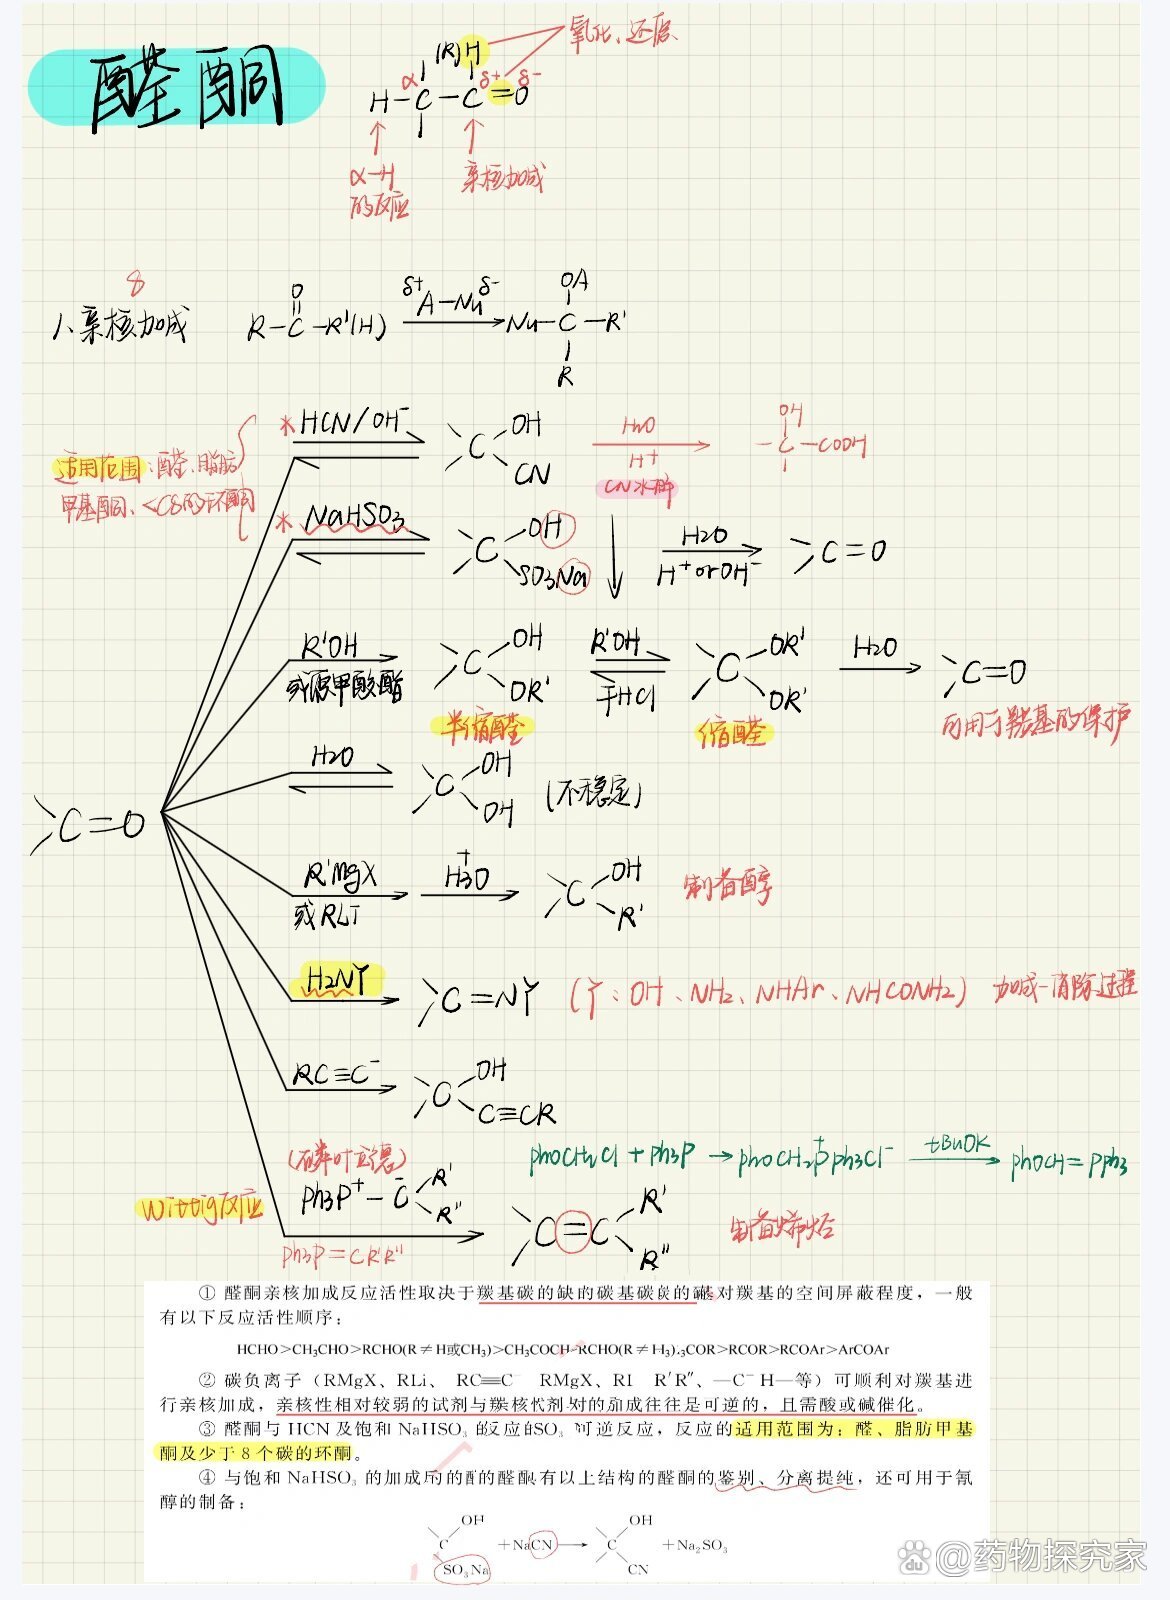 醛酮
(R) H
氧化、还原
α δ+ δ-
H-C-C=O
α-H
的反应
亲核加成
8
1、亲核加成
O
R-C-R'(H)
δ+ A-Nu δ-
OA
Nu-C-R'
R
适用范围:醛、脂肪
甲基酮、<C8的环酮
* HCN/OH-
C OH
CN
H2O
H+
CN水解
OH
-C-COOH
* NaHSO3
C OH
SO3Na
H2O
H+orOH-
C=O
R'OH
或原甲酸酯
C OH
OR'
半缩醛
R'OH
干HCl
C OR'
OR'
缩醛
H2O
C=O
可用于羰基的保护
H2O
C OH
OH
(不稳定)
C=O
R'MgX
或RLi
H3O+
C OH
R'
制备醇
H2NY
C=NY
(Y:OH、NH2、NHAr、NHCONH2) 加成-消除过程
RC≡C-
C OH
C≡CR
(磷叶立德)
phOCH2Cl + ph3P → phOCH2P+ph3Cl- tBuOK phOCH=Pph3
Wittig反应
ph3P+-C- R'
R"
ph3P=CR'R"
C=C R'
R"
制备烯烃
① 醛酮亲核加成反应活性取决于羰基碳的缺的碳基碳炭的 对羰基的空间屏蔽程度，一般
有以下反应活性顺序：
HCHO>CH3CHO>RCHO(R≠H或CH3)>CH3COCH RCHO(R≠H3).3COR>RCOR>RCOAr>ArCOAr
② 碳负离子（RMgX、RLi、 RC≡C- RMgX、RI R'R″、—C- H—等）可顺利对羰基进
行亲核加成，亲核性相对较弱的试剂与羰 成往往是可逆的，且需酸或碱催化。
③ 醛酮与 HCN 及饱和 NaHSO3 的反应的SO3 可逆反应，反应的适用范围为：醛、脂肪甲基
酮及少于 8 个碳的环酮。
④ 与饱和 NaHSO3 的加成 的醛酮有以上结构的醛酮的鉴别、分离提纯，还可用于氰
醇的制备：
OH
C
SO3Na
+NaCN →
OH
C
CN
+Na2SO3
@药物探究家